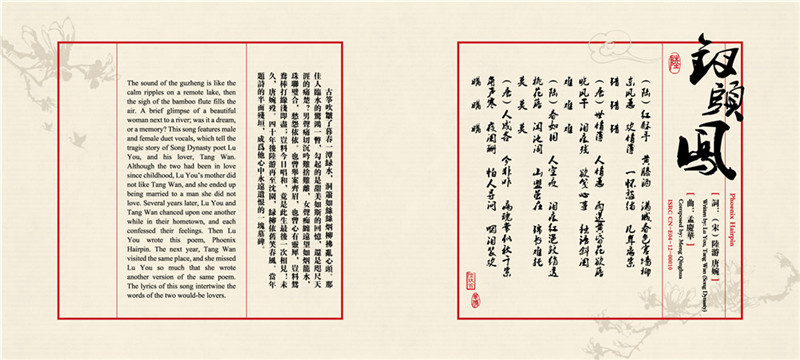 The sound of the guzheng is like the
calm ripples on a remote lake, then
the sigh of the bamboo flute fills the
air. A brief glimpse of a beautiful
woman next to a river; was it a dream,
or a memory? This song features male
and female duet vocals, which tell the
tragic story of Song Dynasty poet Lu
You, and his lover, Tang Wan.
Although the two had been in love
since childhood, Lu You's mother did
not like Tang Wan, and she ended up
being married to a man she did not
love. Several years later, Lu You and
Tang Wan chanced upon one another
while in their hometown, and each
confessed their feelings. Then Lu
You wrote this poem, Phoenix
Hairpin. The next year, Tang Wan
visited the same place, and she missed
Lu You so much that she wrote
another version of the same poem.
The lyrics of this song intertwine the
words of the two would-be lovers.
古箏吹皺了暮春一潭綠水，洞簫如絲絲烟柳拂亂心頭。那
佳人臨水的驚鴻一瞥，勾起的是甜美如斯的回憶，還是咫尺天
涯的痛楚？男聲痛切沉吟難捨難離，女聲痴纏遠望如烟籠水，
珠聯璧合，愁怨依依。也曾舉案齊眉，也曾心有靈犀，豈料鴛
鴦棒打緣淺即盡；豈料今日唱和，竟是此生最後一次相見；未
久，唐婉歿。四十年後陸游再至沈園，綠柳依舊笑春風。當年
題詩的半面殘垣，成爲他心中永遠遺恨的一塊墓碑。
釵頭鳳
陸
Phoenix Hairpin
［詞：（宋）陸游 唐婉］
Written by: Lu You, Tang Wan (Song Dynasty)
［曲：孟慶華］
Composed by: Meng Qinghua
ISRC CN-E04-12-00010
（陸）紅酥手　黃藤酒　滿城春色宮墻柳
東風惡　歡情薄　一懷愁緒　几年離索
錯　錯　錯
（唐）世情薄　人情惡　雨送黃昏花欲落
曉風乾　泪痕殘　欲箋心事　獨語斜闌
難　難　難
（陸）春如舊　人空瘦　泪痕紅浥鮫綃透
桃花落　閑池閣　山盟雖在　錦書難托
莫　莫　莫
（唐）人成各　今非昨　病魂常似秋千索
角声寒　夜闌珊　怕人尋問　咽泪裝歡
瞞　瞞　瞞